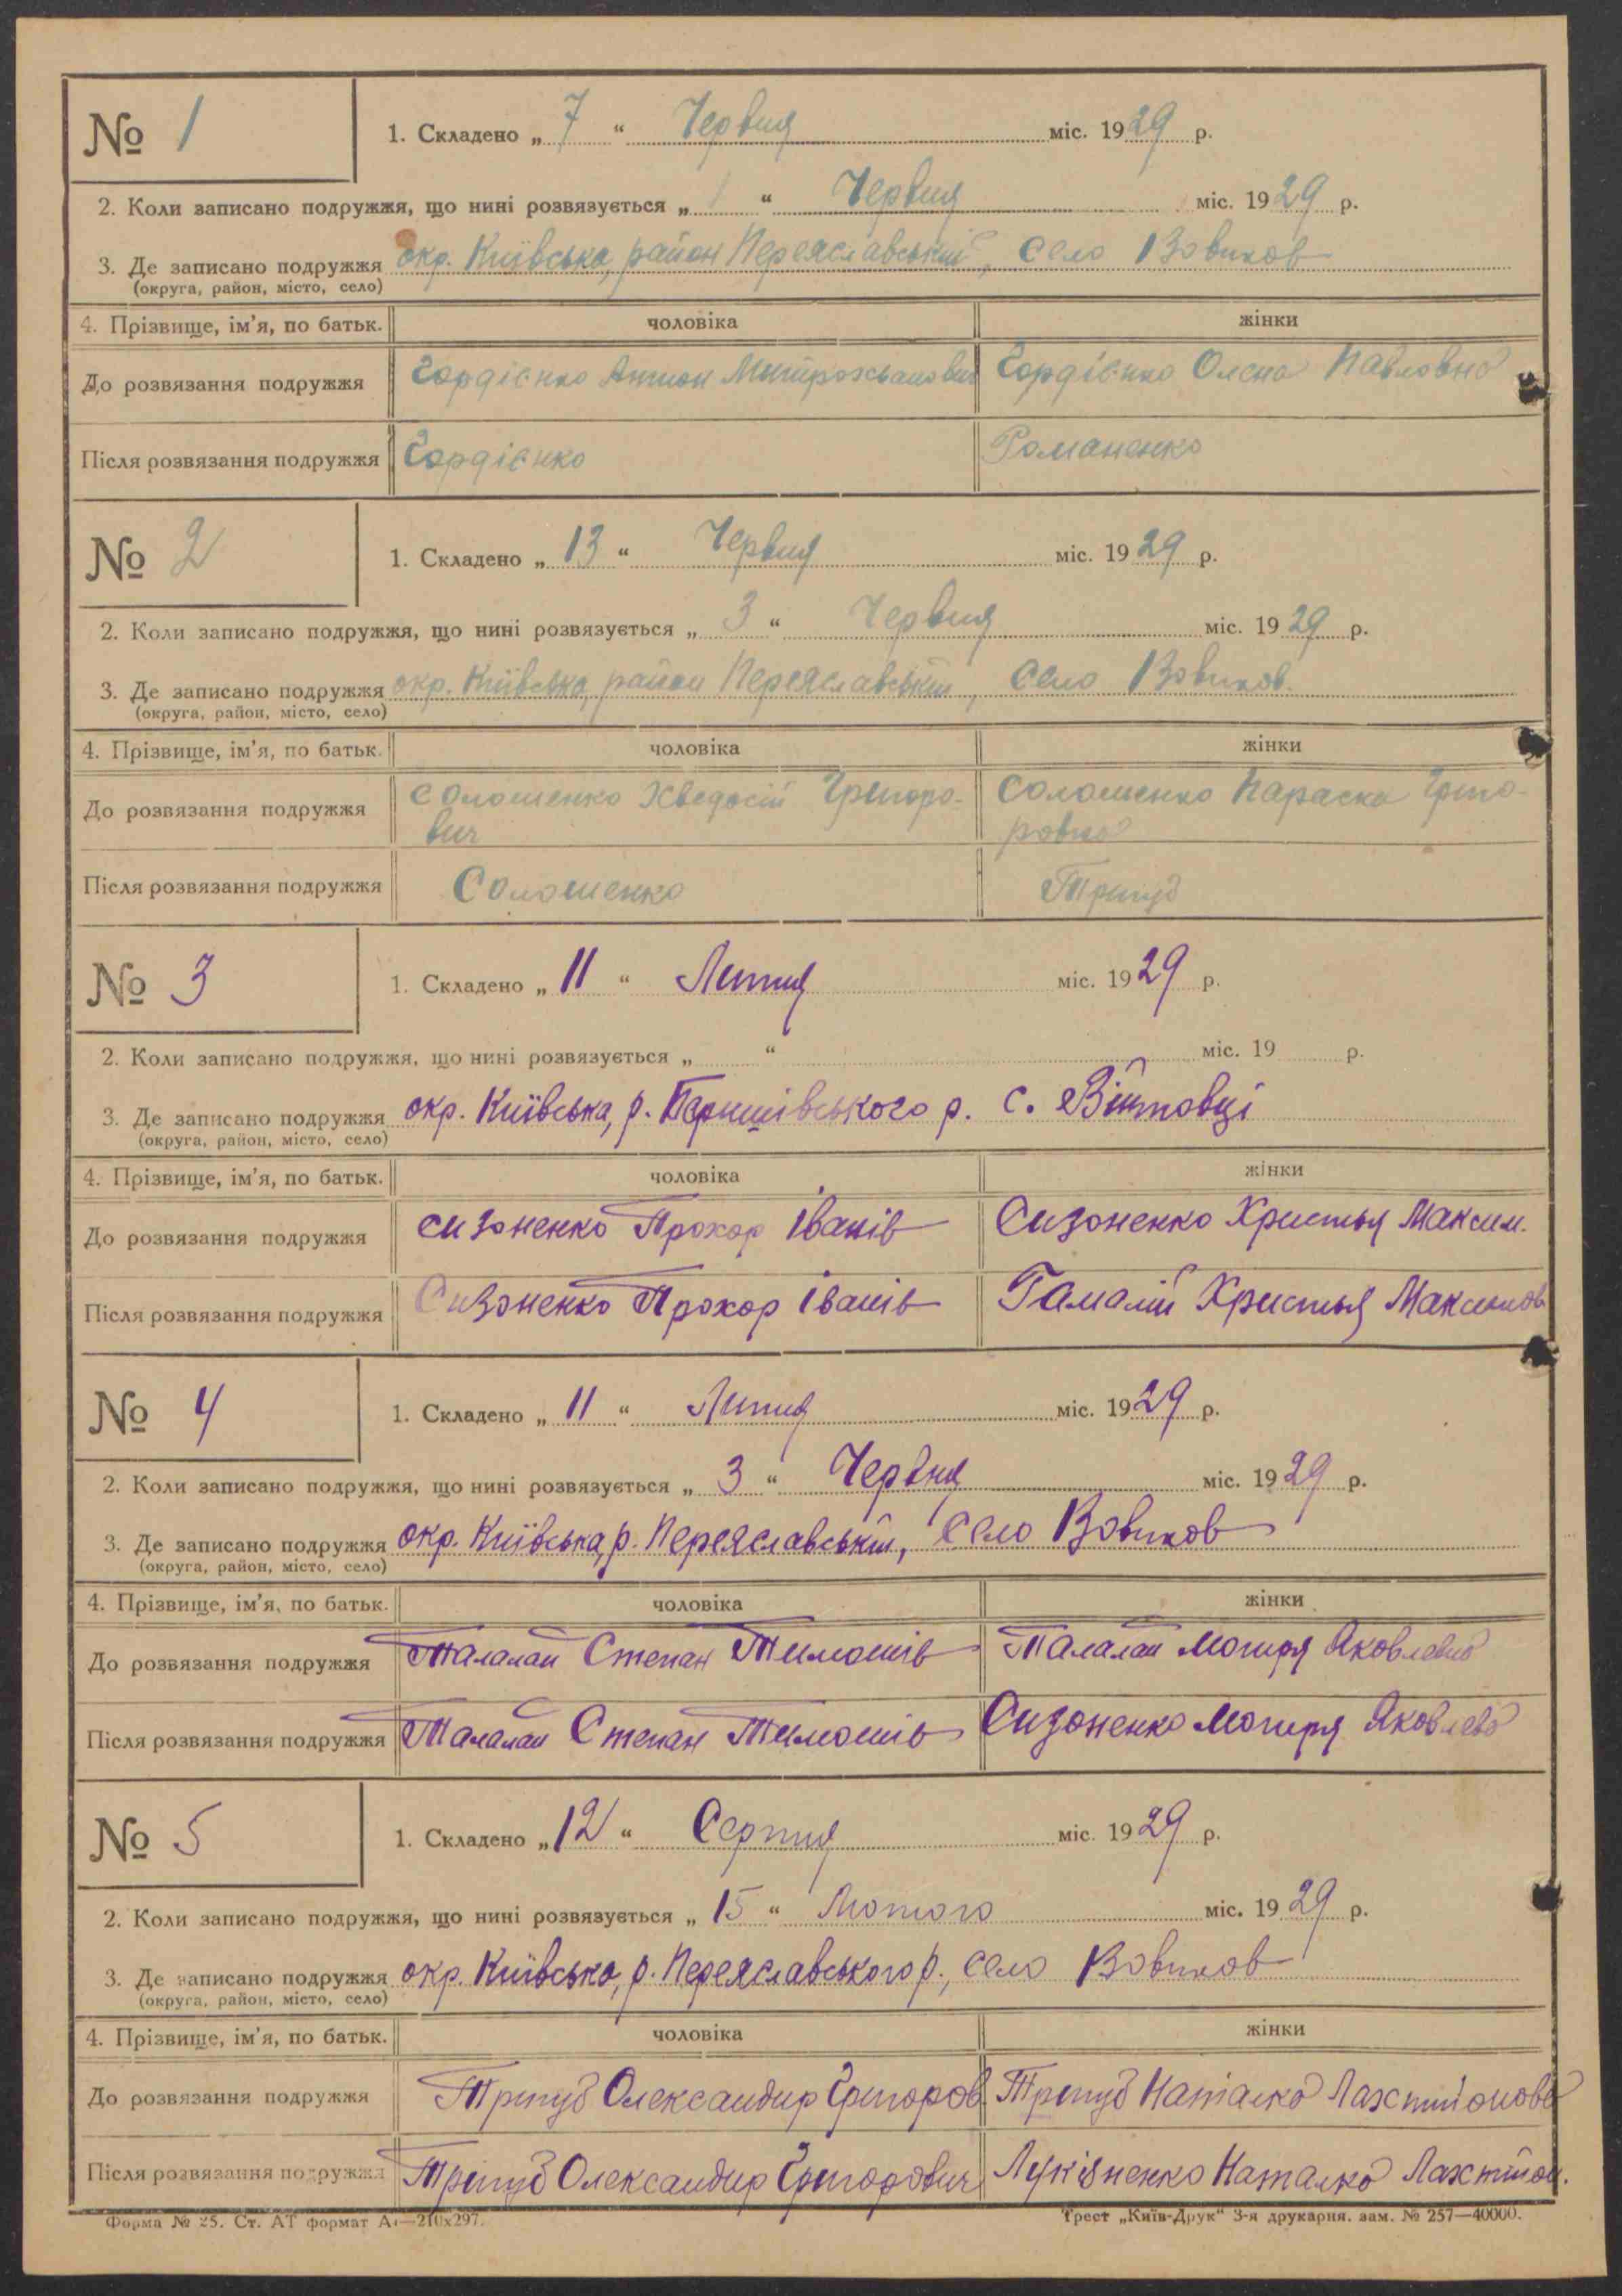 № 1
1. Складено „ 7 “ Червня міс. 1929 р.
2. Коли записано подружжя, що нині розвязується „ 1 “ Червня міс. 1929 р.
3. Де записано подружжя окр. Київська, район Переяславський, село Вовчков
(округа, район, місто, село)
4. Прізвище, ім’я, по батьк. чоловіка жінки
До розвязання подружжя Гордієнко Антон Гордієнко Олена Павловна
Після розвязання подружжя Гордієнко Романенко
№ 2
1. Складено „ 13 “ Червня міс. 1929 р.
2. Коли записано подружжя, що нині розвязується „ 3 “ Червня міс. 1929 р.
3. Де записано подружжя окр. Київська, район Переяславський, село Вовчков.
(округа, район, місто, село)
4. Прізвище, ім’я, по батьк. чоловіка жінки
До розвязання подружжя Солошенко Хведосій Григоро- Солошенко Параска Григо-
вич ровна
Після розвязання подружжя Солошенко Трипуб
№ 3
1. Складено „ 11 “ Липня міс. 1929 р.
2. Коли записано подружжя, що нині розвязується „ “ міс. 19 р.
3. Де записано подружжя окр. Київська, р. с. Війтовці
(округа, район, місто, село)
4. Прізвище, ім’я, по батьк. чоловіка жінки
До розвязання подружжя Сизоненко Прохор Іванів Сизоненко Христья Максим.
Після розвязання подружжя Сизоненко Прохор Іванів Гамалій Христья Максимов
№ 4
1. Складено „ 11 “ Липня міс. 1929 р.
2. Коли записано подружжя, що нині розвязується „ 3 “ Червня міс. 1929 р.
3. Де записано подружжя окр. Київська, р. Переяславський, село Вовчков
(округа, район, місто, село)
4. Прізвище, ім’я, по батьк. чоловіка жінки
До розвязання подружжя Талалай Степан Тимошів Талалай Мотиря Яковлевна
Після розвязання подружжя Талалай Степан Тимошів Сизоненко Мотиря Яковлева
№ 5
1. Складено „ 12 “ Серпня міс. 1929 р.
2. Коли записано подружжя, що нині розвязується „ 15 “ Лютого міс. 1929 р.
3. Де записано подружжя окр. Київська, р. Переяславського р., село Вовчков
(округа, район, місто, село)
4. Прізвище, ім’я, по батьк. чоловіка жінки
До розвязання подружжя Трипуб Олександир Григоров. Трипуб Наталка Лахтийонова
Після розвязання подружжя Трипуб Олександир Григорович Наталка Лахтийон.
Форма № 25. Ст. АТ формат А4—210x297. Трест „Київ-Друк“ 3-я друкарня. зам. № 257—40000.